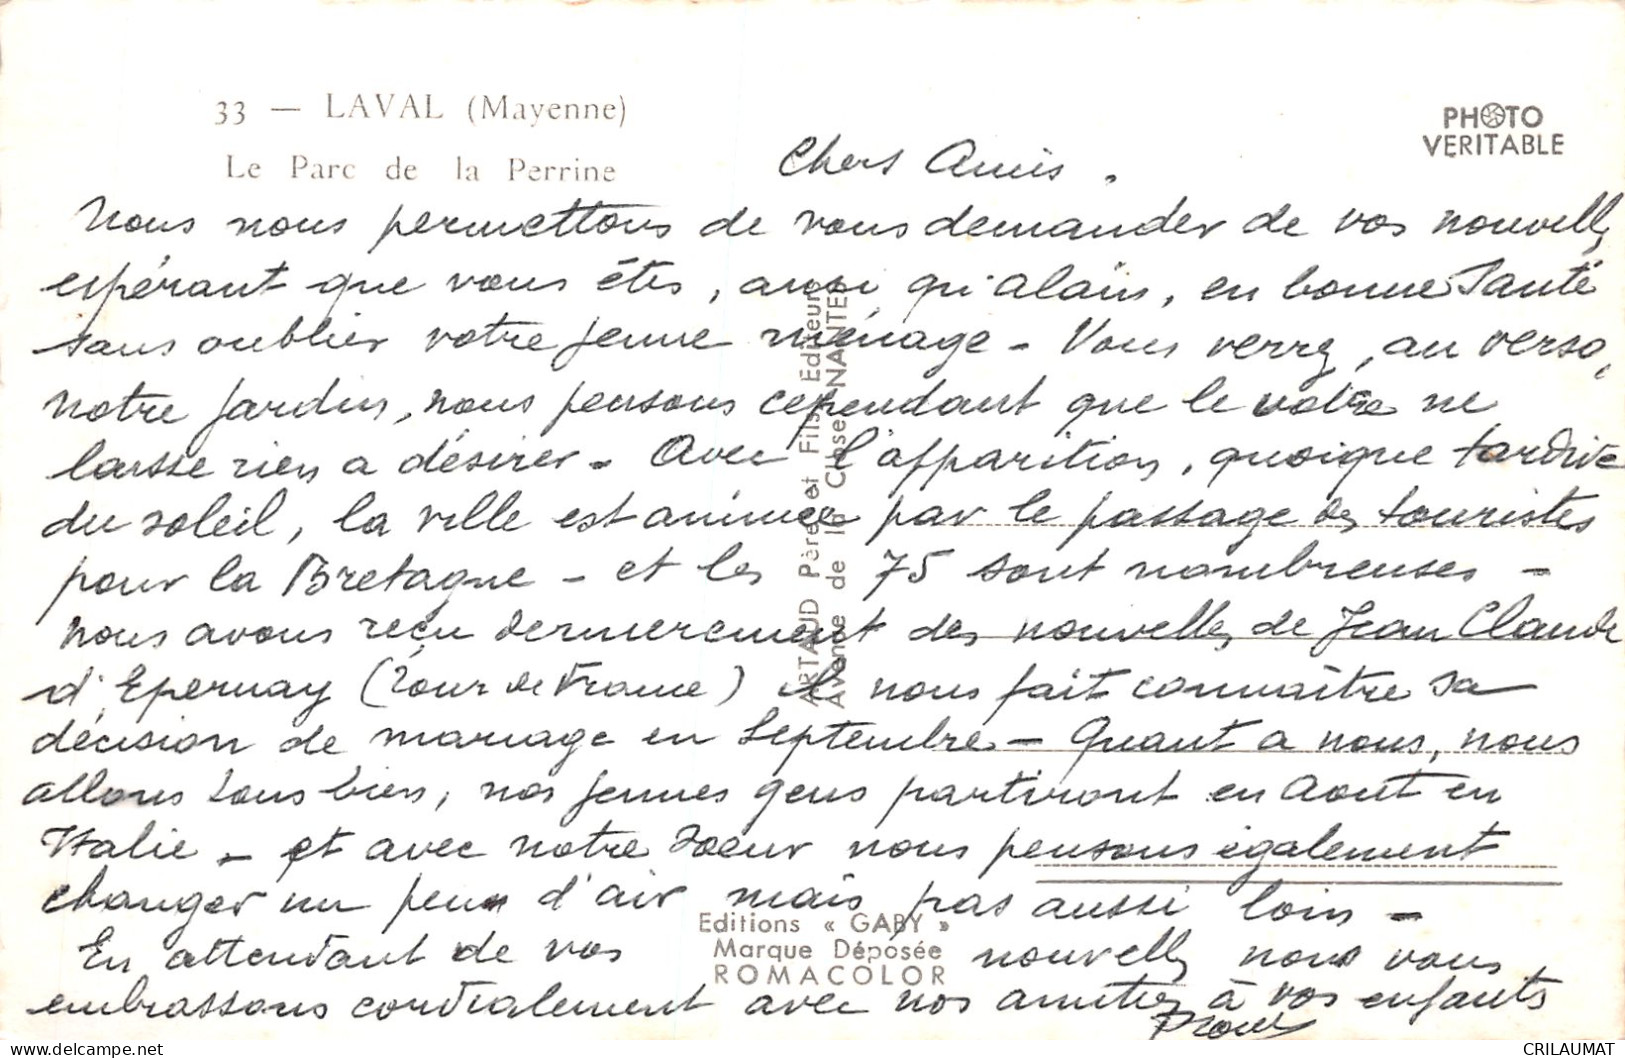 33 — LAVAL (Mayenne)
Le Parc de la Perrine
PHOTO
VERITABLE
Chers Amis.
Nous nous permettons de vous demander de vos nouvelles
espérant que vous êtes, aussi qu'alain, en bonne Santé
sans oublier votre jeune ménage - Vous verrez, au verso,
notre jardin, nous pensons cependant que le votre ne
laisse rien a désirer - Avec l'apparition, quoique tardive
du soleil, la ville est animée par le passage des touristes
pour la Bretagne - et les 75 sont nombreuses -
nous avons reçu dernierement des nouvelles de Jean Claude
d'Epernay (Tour de France) il nous fait connaître sa
décision de mariage en Septembre - Quant a nous, nous
allons tous bien, nos jeunes gens partiront en Aout en
Italie - et avec notre soeur nous pensons également
changer un peu d'air mais pas aussi loin -
En attendant de vos nouvelles nous vous
embrassons cordialement avec nos amitiés à vos enfants
ARTAUD Père et Fils, Editeurs
Avenue de la Close NANTES
Editions « GABY »
Marque Déposée
ROMACOLOR
delcampe.net
CRILAUMAT